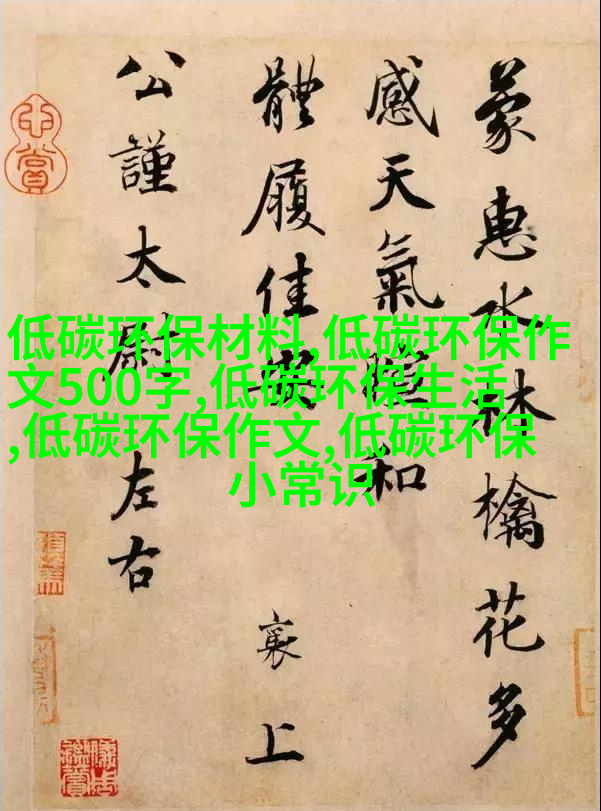 蒙惠水林檎花多
感天氣和
體履佳
襄上
公謹太尉左右
低碳环保材料,低碳环保作
文500字,低碳环保生活
,低碳环保作文,低碳环保
小常识